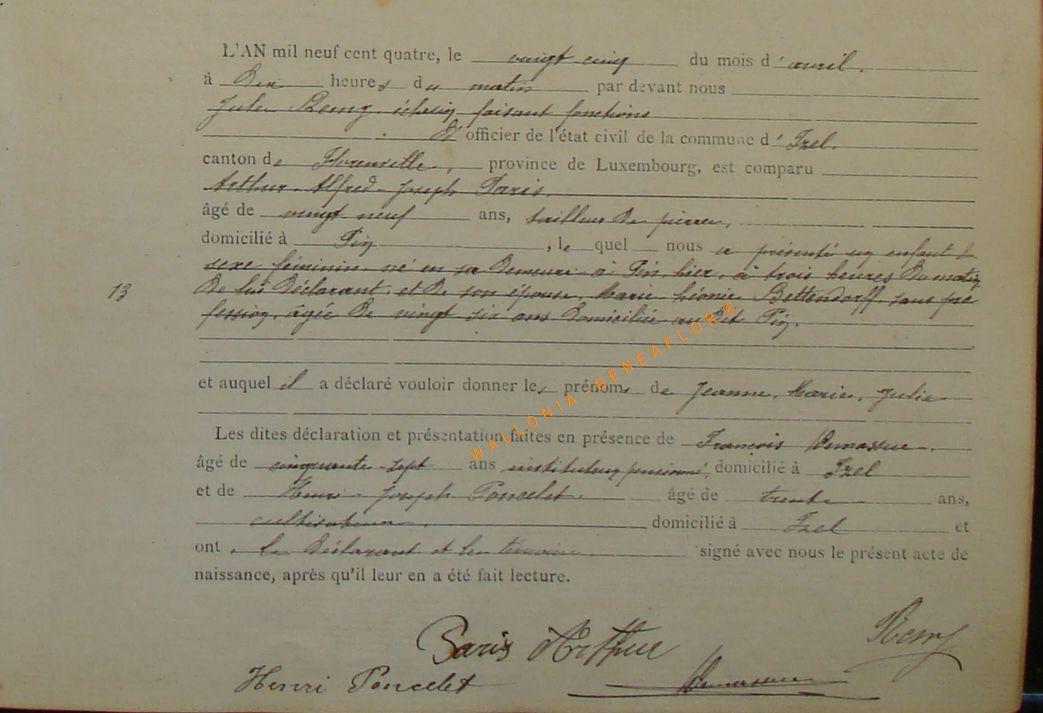 L'AN mil neuf cent quatre, le vingt cinq du mois d'avril.
à Dix heures du matin par devant nous
Jules Remy, échevin faisant fonctions
d'officier de l'état civil de la commune d'Izel,
canton de Florenville, province de Luxembourg, est comparu
Arthur-Alfred-Joseph Paris,
âgé de vingt neuf ans, tailleur de pierres,
domicilié à Pin, lequel nous a présenté un enfant de
sexe féminin, né en sa demeure à Pin, hier, à trois heures du matin,
13
de lui déclarant, et de son épouse, Marie Léonie Bettendorff, sans pro
fession, âgée de vingt six ans domiciliée au dit Pin.
et auquel il a déclaré vouloir donner les prénoms de Jeanne, Marie, Julie
Les dites déclaration et présentation faites en présence de François
âgé de cinquante-sept ans instituteur pensionné, domicilié à Izel
et de Henri-Joseph Poncelet. âgé de trente ans,
cultivateur, domicilié à Izel et
ont, le déclarant et les témoins signé avec nous le présent acte de
naissance, après qu'il leur en a été fait lecture.
Paris Arthur Remy
Henri Poncelet
WALLONIA GENEAFLORE